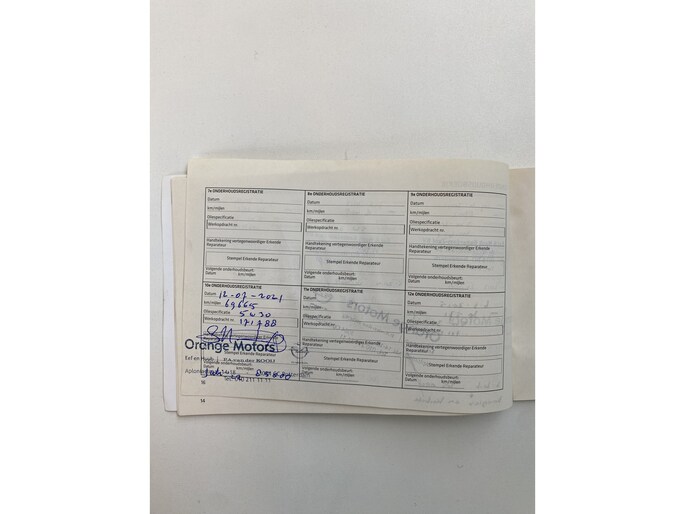 7e ONDERHOUDSREGISTRATIE
Datum
km/mijlen
Oliespecificatie
Werkopdracht nr.
Handtekening vertegenwoordiger Erkende
Reparateur
Stempel Erkende Reparateur
Volgende onderhoudsbeurt:
Datum km/mijlen
8e ONDERHOUDSREGISTRATIE
Datum
km/mijlen
Oliespecificatie
Werkopdracht nr.
Handtekening vertegenwoordiger Erkende
Reparateur
Stempel Erkende Reparateur
Volgende onderhoudsbeurt:
Datum km/mijlen
9e ONDERHOUDSREGISTRATIE
Datum
km/mijlen
Oliespecificatie
Werkopdracht nr.
Handtekening vertegenwoordiger Erkende
Reparateur
Stempel Erkende Reparateur
Volgende onderhoudsbeurt:
Datum km/mijlen
10e ONDERHOUDSREGISTRATIE
Datum 12-07-2021
km/mijlen 69665
Oliespecificatie 5w30
Werkopdracht nr. 171788
Orange Motors
Stempel Erkende Reparateur
11e ONDERHOUDSREGISTRATIE
Datum
km/mijlen
Oliespecificatie
Werkopdracht nr.
Handtekening vertegenwoordiger Erkende
Reparateur
Stempel Erkende Reparateur
Volgende onderhoudsbeurt:
Datum km/mijlen
12e ONDERHOUDSREGISTRATIE
Datum
km/mijlen
Oliespecificatie
Werkopdracht nr.
Handtekening vertegenwoordiger Erkende
Reparateur
Stempel Erkende Reparateur
Volgende onderhoudsbeurt:
Datum km/mijlen
16
14